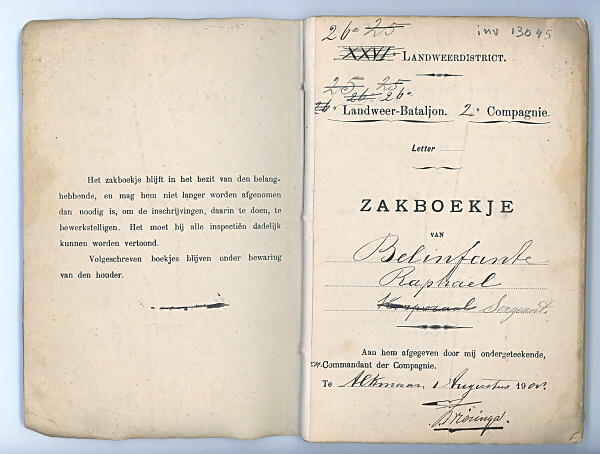 Het zakboekje blijft in het bezit van den belang-
hebbende, en mag hem niet langer worden afgenomen
dan noodig is, om de inschrijvingen, daarin te doen, te
bewerkstelligen. Het moet bij alle inspectiën dadelijk
kunnen worden vertoond.
Volgeschreven boekjes blijven onder bewaring
van den houder.
inv 13045
26e 25
XXVIe LANDWEERDISTRICT.
25 25
26e 26e
Landweer-Bataljon. 2e Compagnie.
Letter
ZAKBOEKJE
VAN
Belinfante
Raphael
Korporaal Sergeant.
Aan hem afgegeven door mij ondergeteekende,
Commandant der Compagnie.
Te Alkmaar, 1 Augustus 190